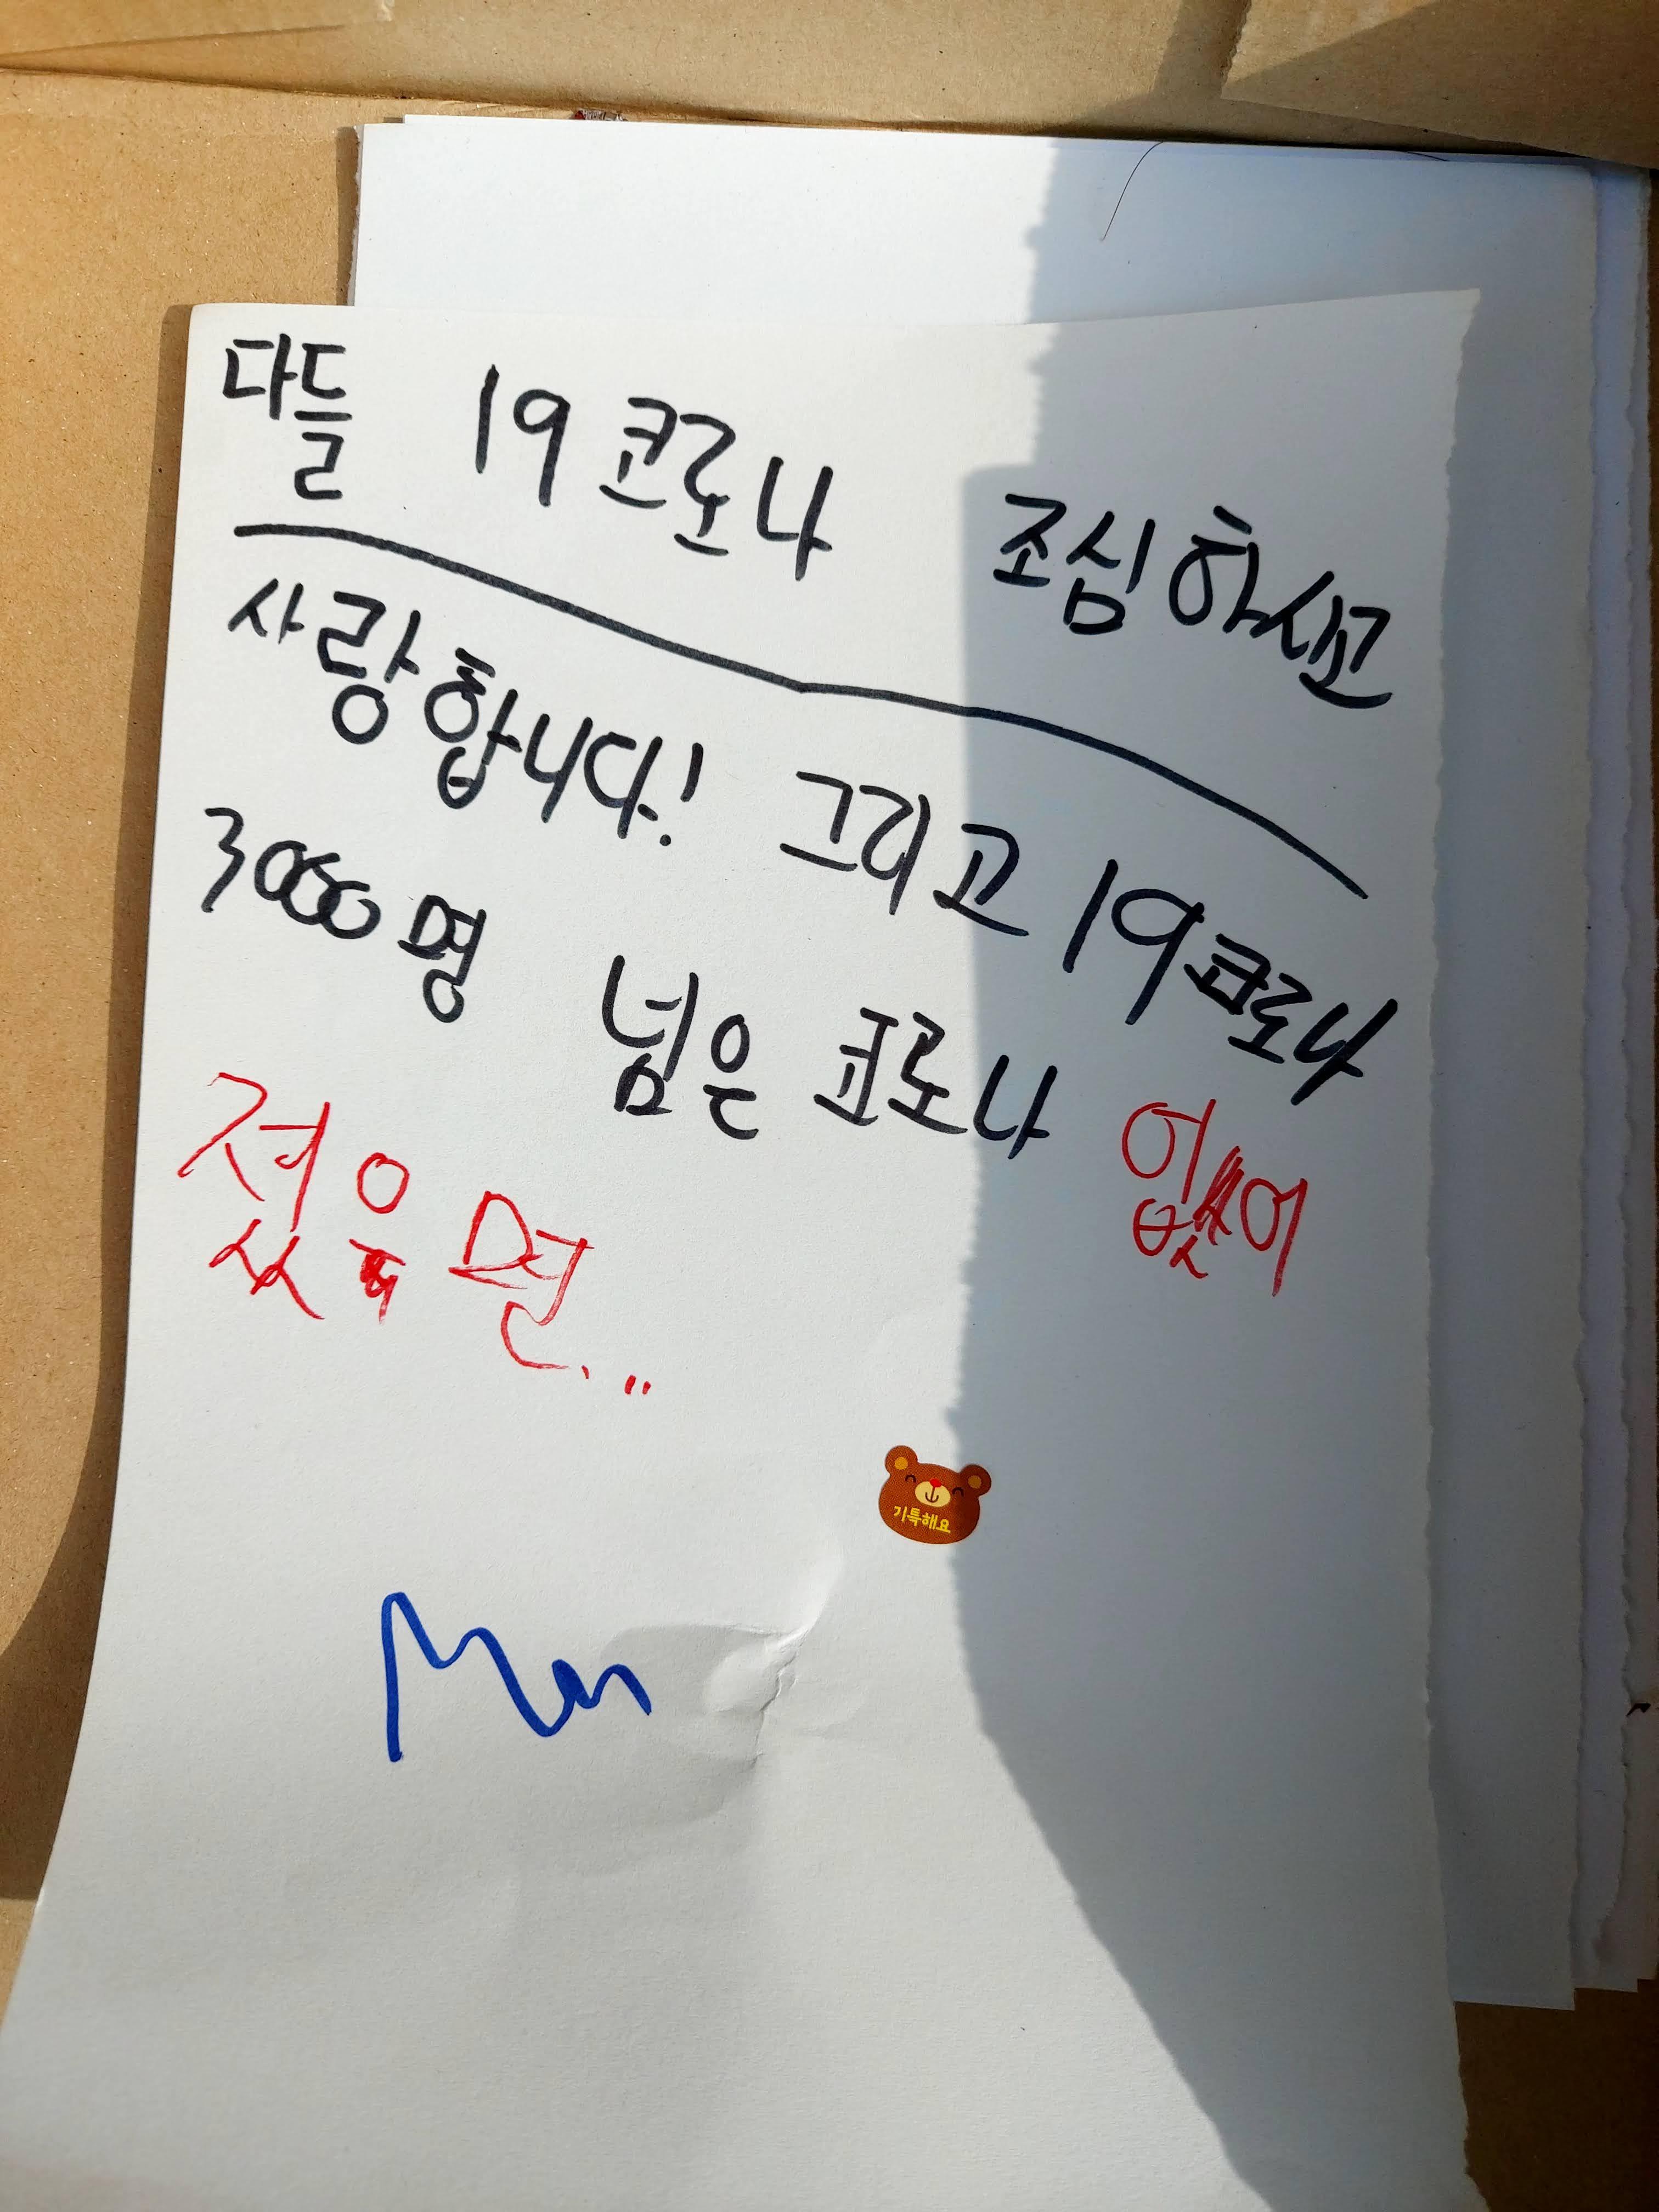 다들 19 코로나 조심하시고
사랑합니다! 그리고 19 코로나
3000명 넘은 코로나 없어
젔으면...
기특해요